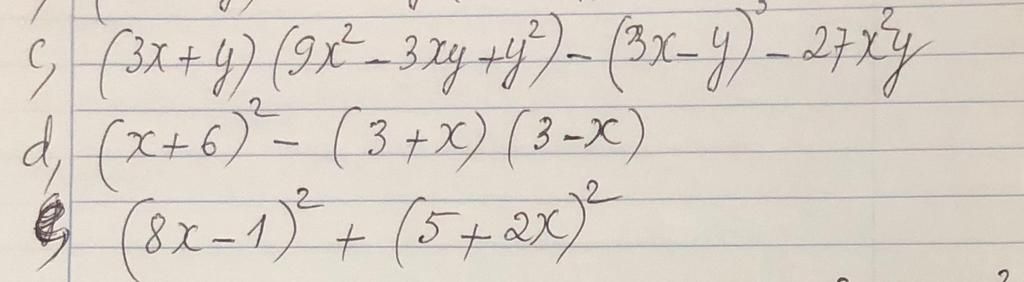 c, (3x + y) (9x² - 3xy + y²) - (3x - y)³ - 27x²y
d, (x + 6)² - (3 + x) (3 - x)
e, (8x - 1)² + (5 + 2x)²